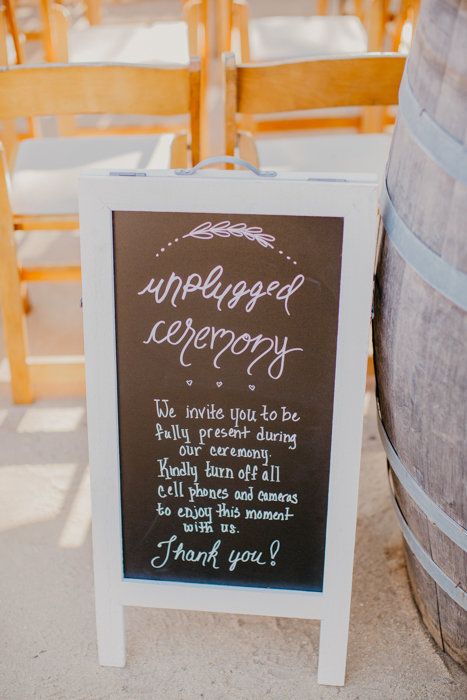 unplugged
ceremony
We invite you to be
fully present during
our ceremony.
Kindly turn off all
cell phones and cameras
to enjoy this moment
with us.
Thank you!